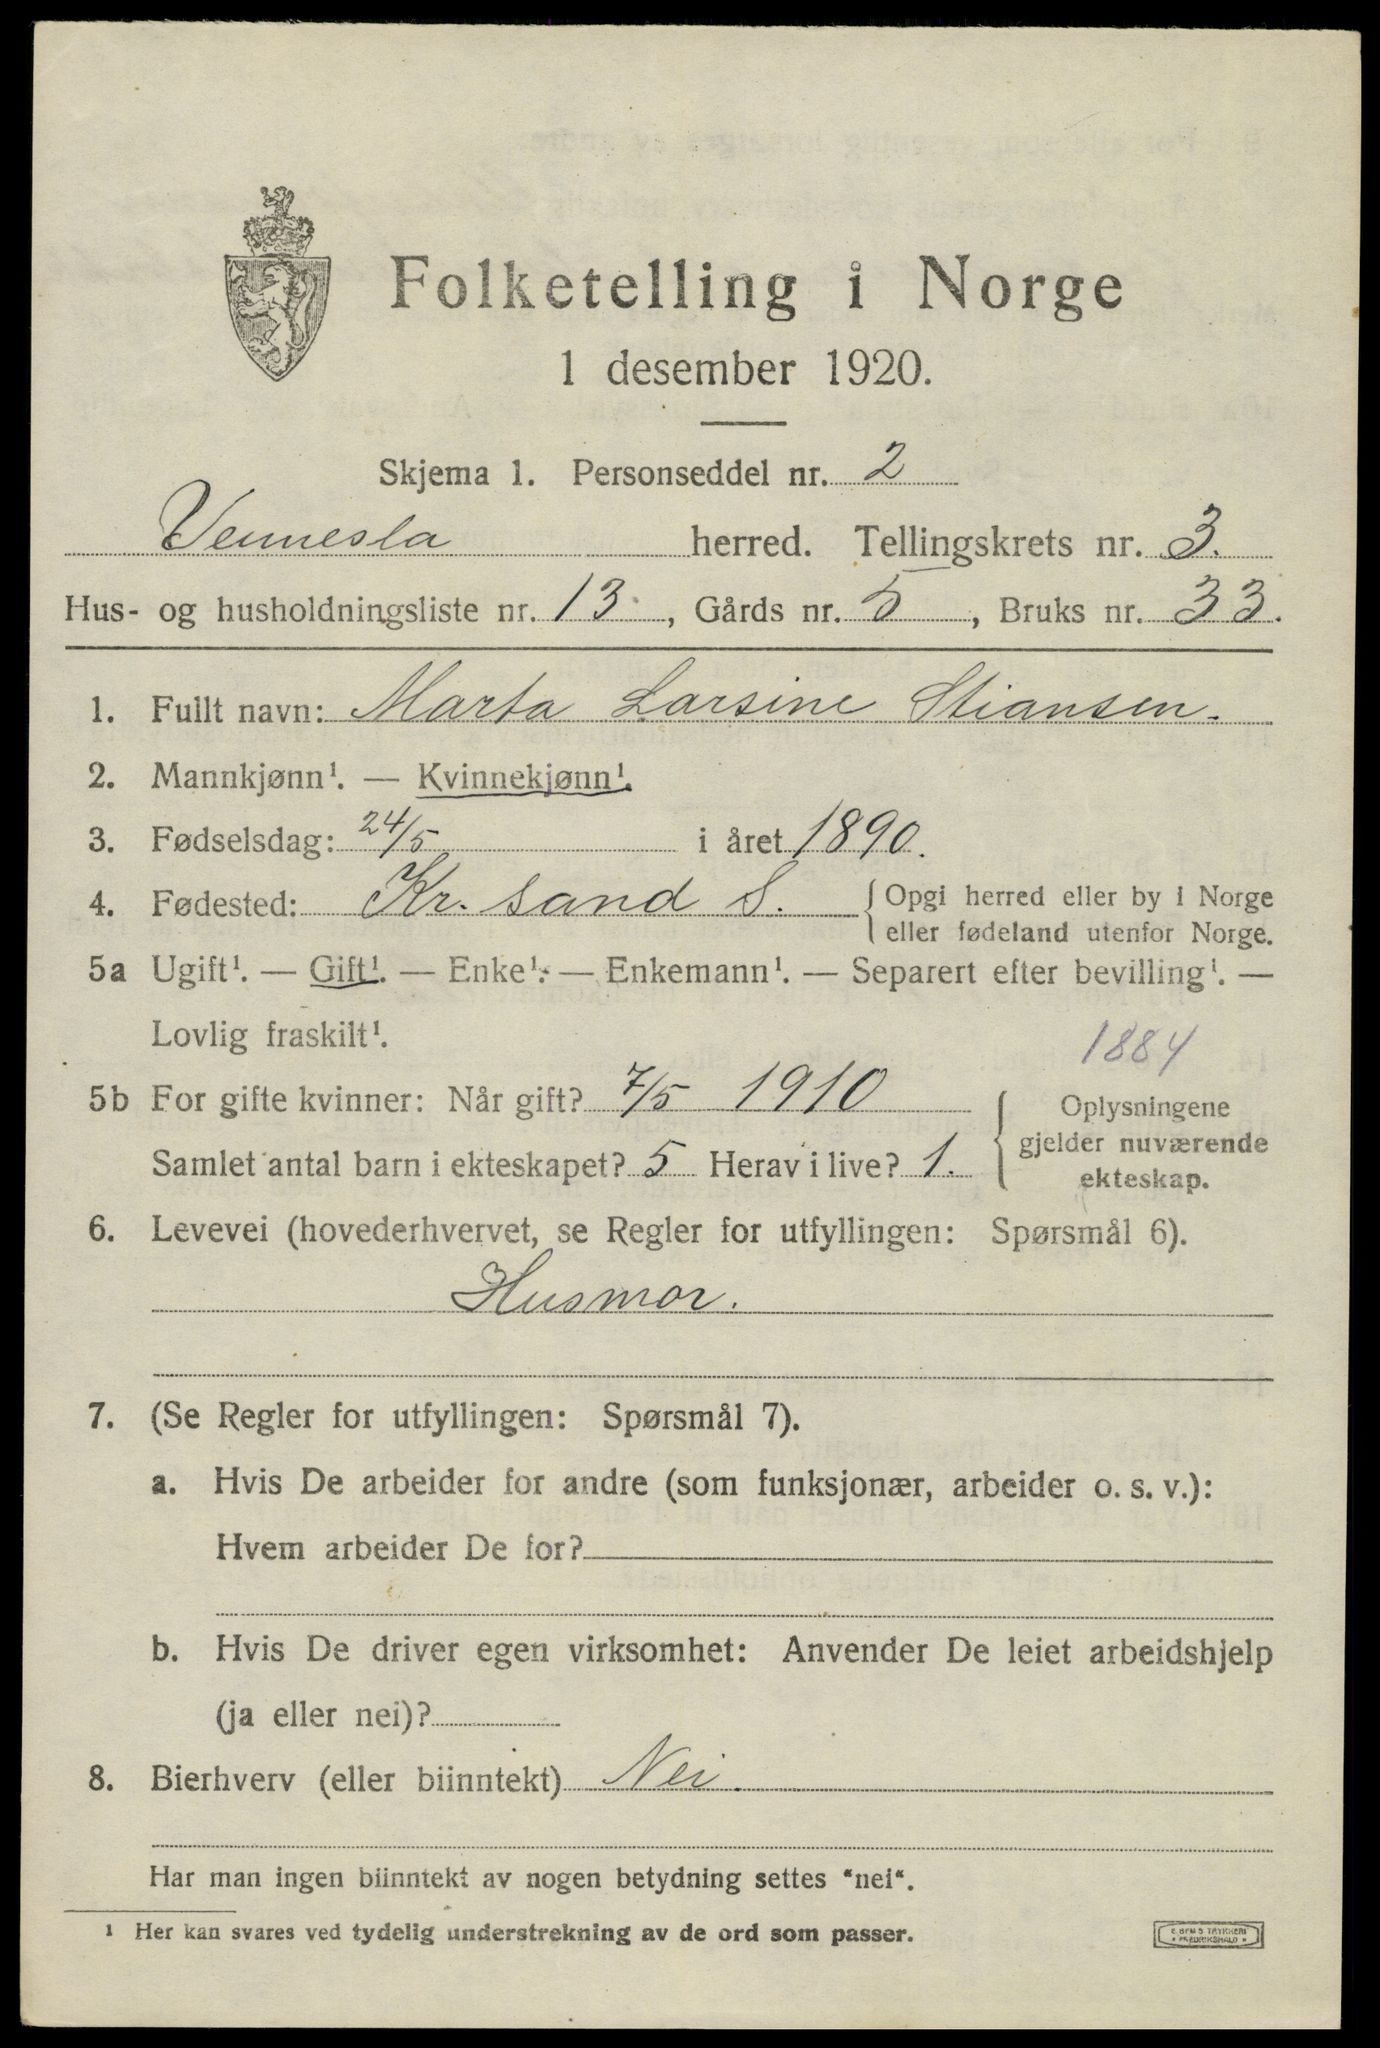 Folketelling i Norge
1 desember 1920.
Skjema 1. Personseddel nr. 2
Vennesla herred. Tellingskrets nr. 3.
Hus- og husholdningsliste nr. 13, Gårds nr. 5, Bruks nr. 33.
1. Fullt navn: Marta Larsine Stiansen.
2. Mannkjønn¹. — Kvinnekjønn¹.
3. Fødselsdag: 24/5 i året 1890.
4. Fødested: Kr. sand S. { Opgi herred eller by i Norge
eller fødeland utenfor Norge.
5a Ugift¹. — Gift¹. — Enke¹. — Enkemann¹. — Separert efter bevilling¹. —
Lovlig fraskilt¹.
1884
5b For gifte kvinner: Når gift? 7/5 1910
Samlet antal barn i ekteskapet? 5 Herav i live? 1.
{ Oplysningene
gjelder nuværende
ekteskap.
6. Levevei (hovederhvervet, se Regler for utfyllingen: Spørsmål 6).
Husmor.
7. (Se Regler for utfyllingen: Spørsmål 7).
a. Hvis De arbeider for andre (som funksjonær, arbeider o. s. v.):
Hvem arbeider De for?
b. Hvis De driver egen virksomhet: Anvender De leiet arbeidshjelp
(ja eller nei)?
8. Bierhverv (eller biinntekt) Nei.
Har man ingen biinntekt av nogen betydning settes "nei".
¹ Her kan svares ved tydelig understrekning av de ord som passer.
TRYKKERI
FREDRIKSHALD